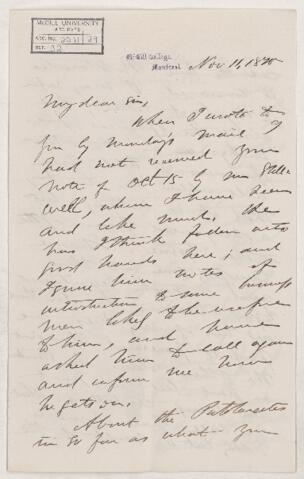 McGILL UNIVERSITY
ACC. NO. 2211/29
REF. 32
McGill College
Montreal
Nov 11, 18
My dear Sir,
When I wrote to
you by Monday's mail I
had not received your
note of Oct 15 by Mr
well, whom I have seen
and like much. He
has I think fallen into
good hands here; and
I gave him notes of
introduction to some business
men likely to be useful
to him, and have
asked him to call again
and inform me how
he gets on.
About the
in so far as what your